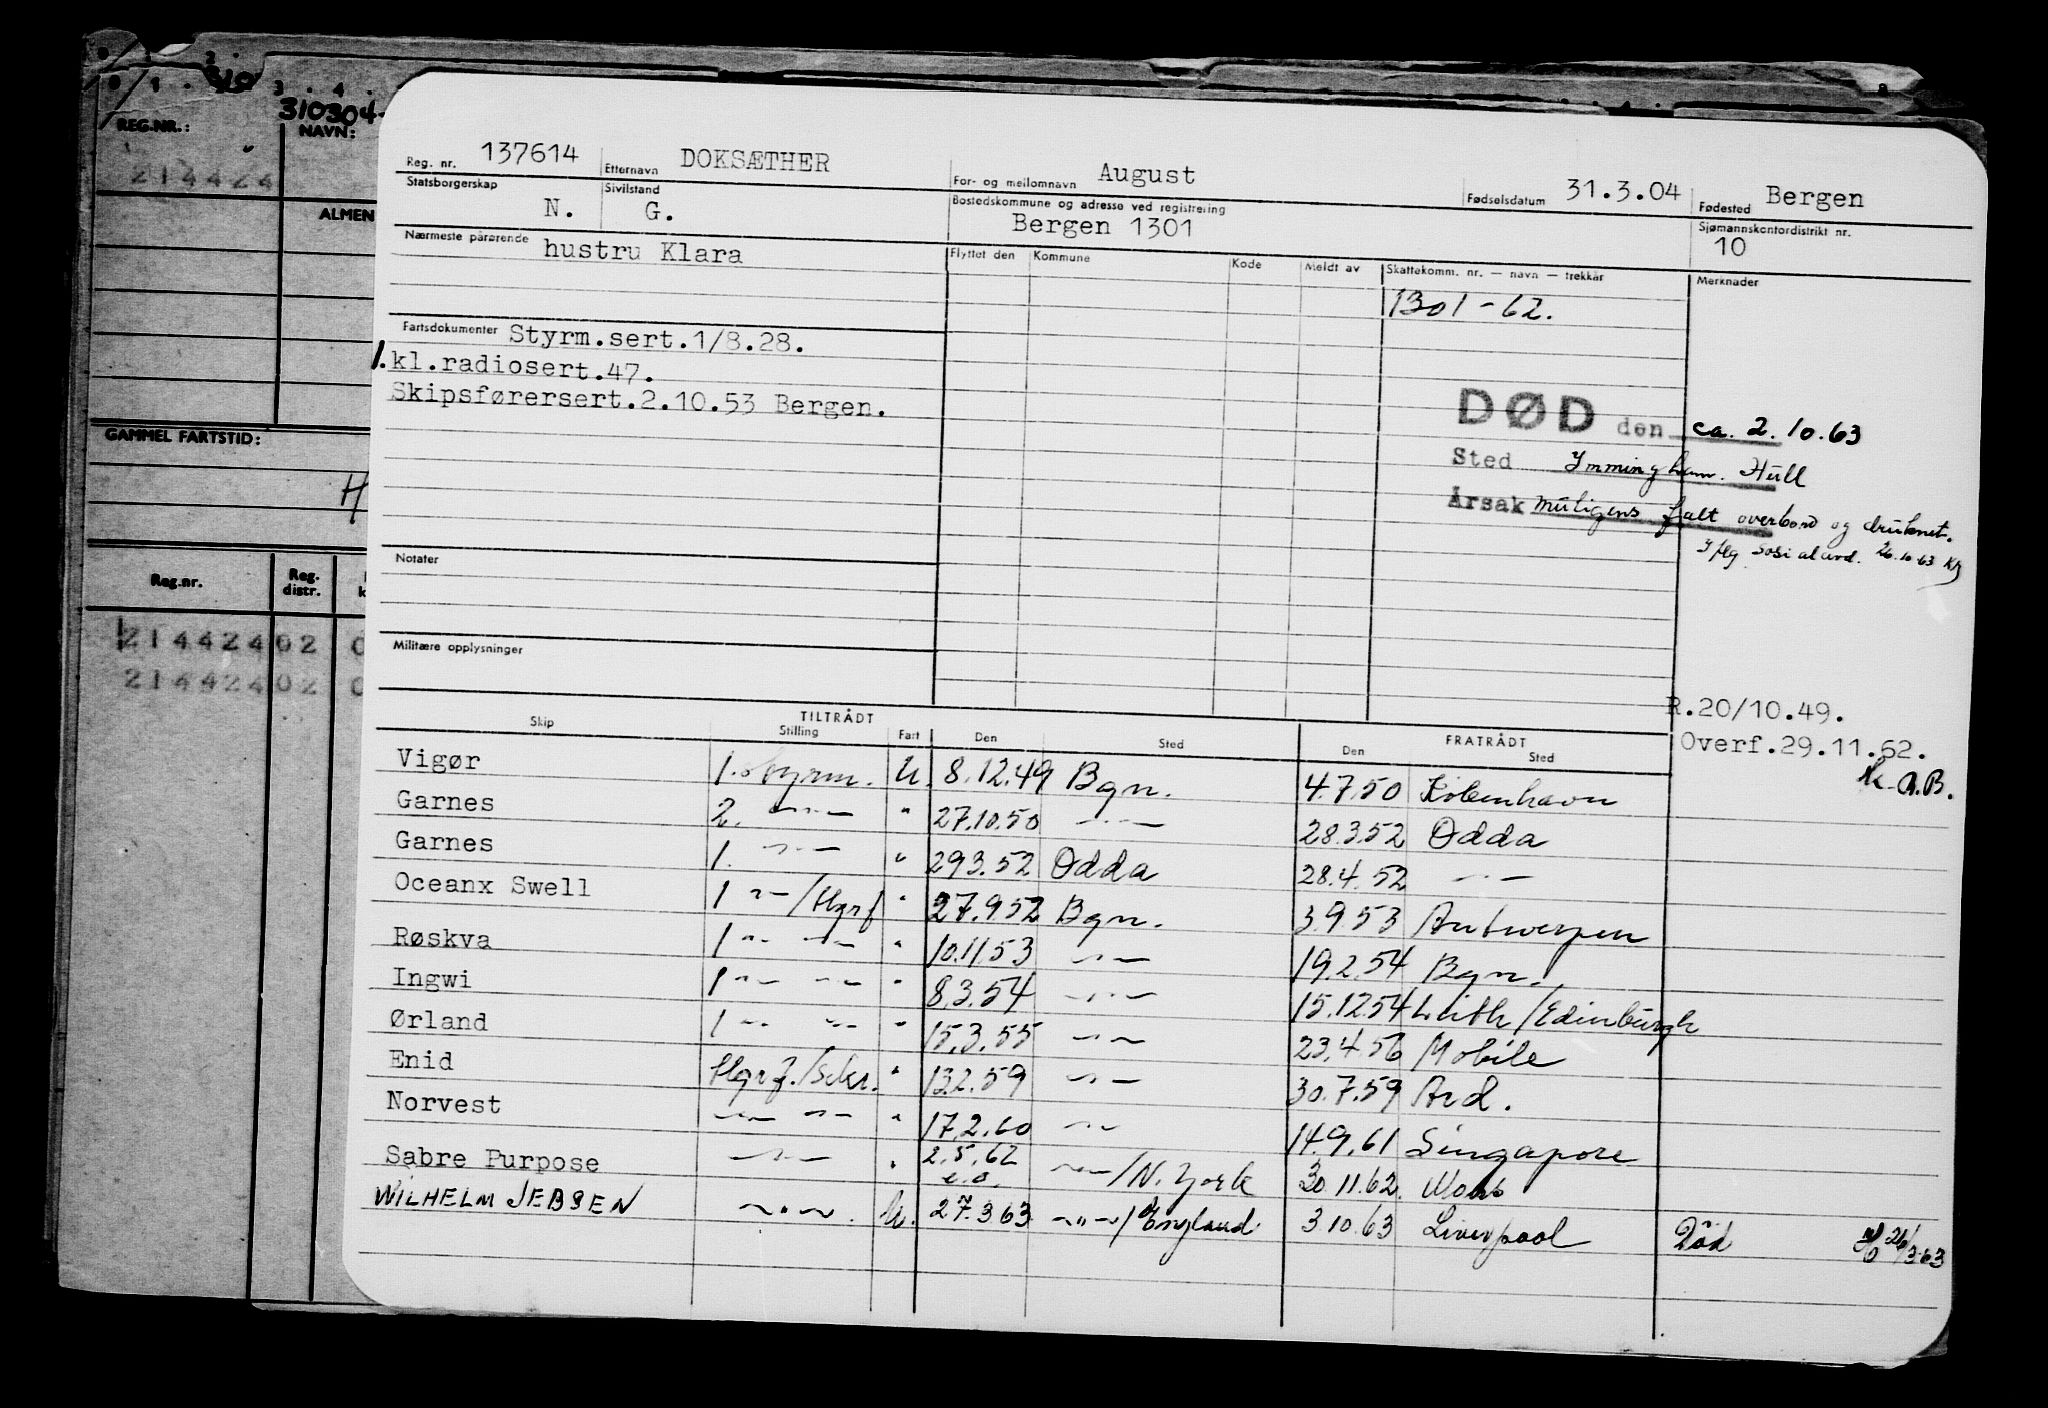 310304
REG.NR.: NAVN:
214424
ALMEN
GAMMEL FARTSTID:
H
Reg.nr. Reg. distr.
214424 02 0
214424 02 0
Reg. nr. 137614 Etternavn DOKSÆTHER For- og mellomnavn August Fødselsdatum 31.3.04 Fødested Bergen
Statsborgerskap N. Sivilstand G. Bostedskommune og adresse ved registrering Bergen 1301 Sjømannskontordistrikt nr. 10
Nærmeste pårørende hustru Klara Flyttet den Kommune Kode Meldt av Skattekomm. nr. — navn — trekkår Merknader
1301-62.
Fartsdokumenter Styrm.sert.1/8.28.
1.kl.radiosert.47.
Skipsførersert.2.10.53 Bergen.
DØD den ca. 2.10.63
Sted Immingham. Hull
Årsak muligens falt overbord og druknet.
Iflg Sosialavd. 26.10.63
Notater
Militære opplysninger
R.20/10.49.
Overf.29.11.62.
TILTRÅDT FRATRÅDT
Skip Stilling Fart Den Sted Den Sted
Vigør 1. styrm. U. 8.12.49 Bgn. 4.7.50 København
Garnes 2. -"- " 27.10.50 -"- 28.3.52 Odda
Garnes 1. -"- " 29.3.52 Odda 28.4.52 -"-
Oceanx Swell 1 -"-/tlgrf " 27.9.52 Bgn. 3.9.53 Antwerpen
Røskva 1 -"- -"- " 10.11.53 -"- 19.2.54 Bgn.
Ingwi 1 -"- -"- " 8.3.54 -"- 15.12.54 Leith/Edinburgh
Ørland 1 -"- -"- " 15.3.55 -"- 23.4.56 Mobile
Enid tlgrf./Sekr. " 13.2.59 -"- 30.7.59 Ard.
Norvest -"- -"- " 17.2.60 -"- 14.9.61 Singapore
Sabre Purpose -"- " 2.5.62 e.o. -"-/N. York 30.11.62.
WILHELM JEBSEN -"- U. 27.3.63 -"-/England 3.10.63 Liverpool Død